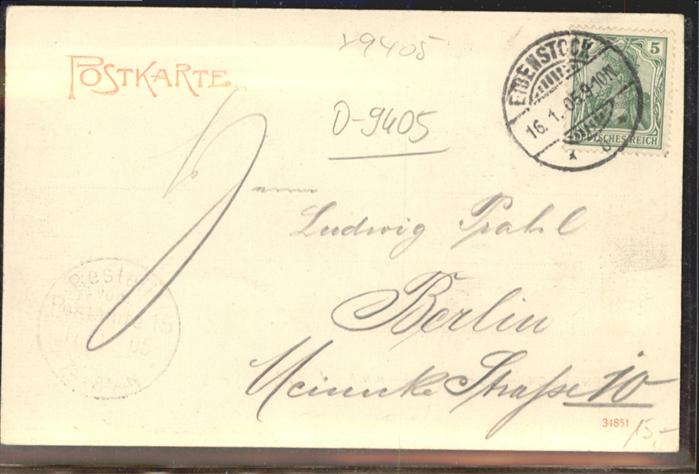 x9405
POSTKARTE
EIBENSTOCK
16.1.05.9-10N.
* c
5
DEUTSCHES REICH
O-9405
Herrn
Ludwig Prahl
Berlin
Meineke Straße 10
Bestellt
vom
Postamte 15
05
34851
15,-